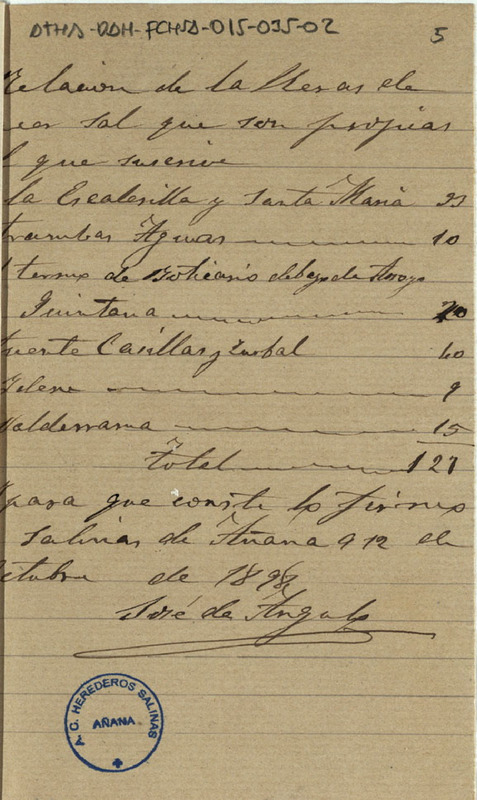 DTHA-DDH-FCHSA-015-035-02
5
Relacion de la Heras de
cer sal que son propias
l que suscrive
la Escalerilla y Santa Maria 23
trambas Aguas 10
termno de Boticario debajo de Arroyo
Quintana
uente Casillas y 60
9
Valderrama 15
total 127
para que conste lo firmo
Salinas de Añana a 12 de
ctubre de 1898
José de Angulo
A. C. HEREDEROS SALINAS
AÑANA